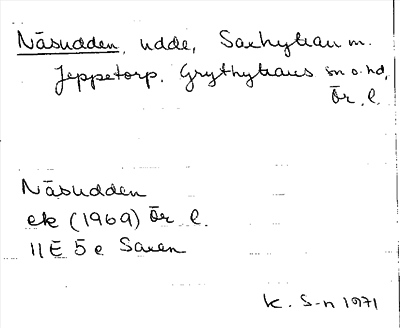 Näsudden, udde, Saxhyttan m.
Jeppetorp. Grythyttans sn o. hd,
Ör. l.
Näsudden
ek (1969) Ör l.
11E 5e Saxen
K. S-n 1971